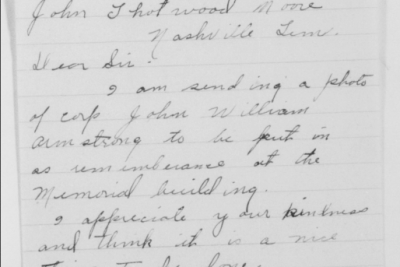 John Thotwood Moore
Nashville Tenn.
Dear Sir.
I am sending a photo
of corp John William
Armstrong to be put in
as rememberance at the
Memorial building.
I appreciate your kindness
and think it is a nice